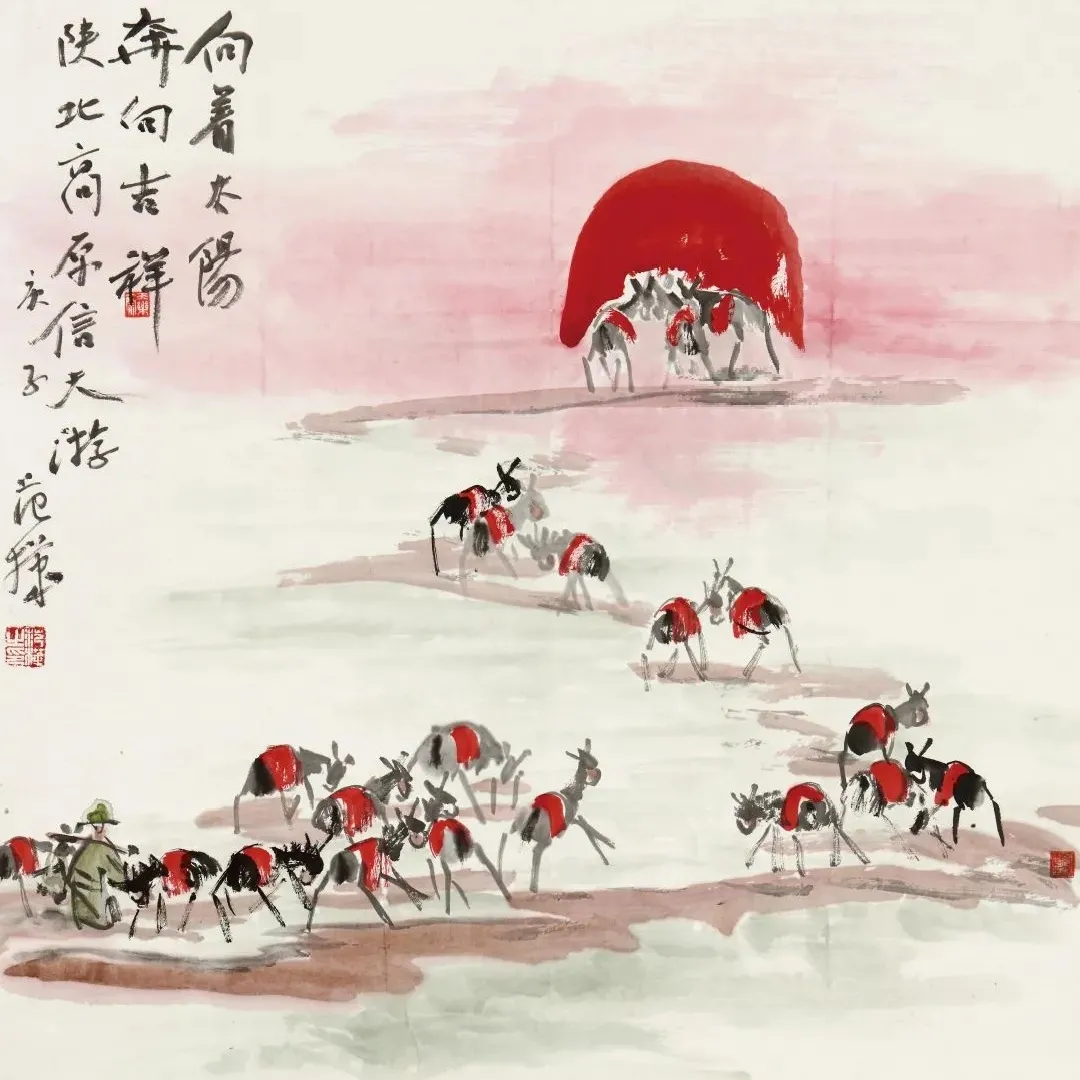 向着太陽
奔向吉祥
陕北高原信天游
庚子
范